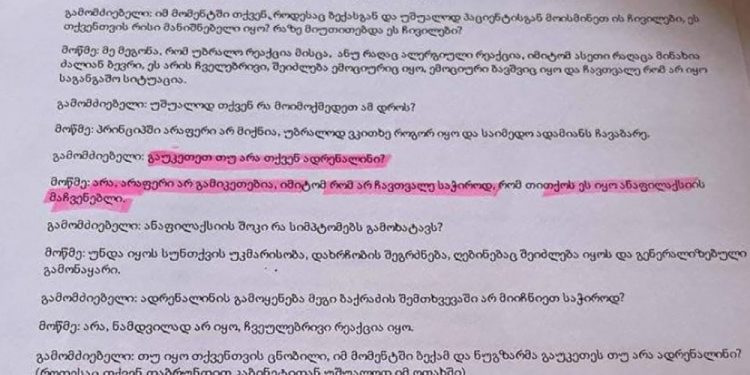 გამომძიებელი: იმ მომენტში თქვენ, როდესაც ბექასგან და უშუალოდ პაციენტისგან მოისმინეთ ის ჩივილები, ეს
თქვენთვის რისი მანიშნებელი იყო? რაზე მიუთითებდა ეს ჩივილები?
მოწმე: მე მეგონა, რომ უბრალო რეაქცია მისცა, ანუ რაღაც ალერგიული რეაქცია, იმიტომ ასეთი რაღაცა მინახია
ძალიან ბევრი, ეს არის ჩვეულებრივი, შეიძლება ემოციურიც იყო, ემოციური ბავშვიც იყო და ჩავთვალე რომ არ იყო
საგანგაშო სიტუაცია.
გამომძიებელი: უშუალოდ თქვენ რა მოიმოქმედეთ ამ დროს?
მოწმე: პრინციპში არაფერი არ მიქნია, უბრალოდ ვკითხე როგორ იყო და საიმედო ადამიანს ჩავაბარე.
გამომძიებელი: გაუკეთეთ თუ არა თქვენ ადრენალინი?
მოწმე: არა, არაფერი არ გამიკეთებია, იმიტომ რომ არ ჩავთვალე საჭიროდ, რომ თითქოს ეს იყო ანაფილაქსიის
მაჩვენებლი.
გამომძიებელი: ანაფილაქსიის შოკი რა სიმპტომებს გამოხატავს?
მოწმე: უნდა იყოს სუნთქვის უკმარისობა, დახრჩობის შეგრძნება, ღებინებაც შეიძლება იყოს და გენერალიზებული
გამონაყარი.
გამომძიებელი: ადრენალინის გამოყენება მეგი ბაქრაძის შემთხვევაში არ მიიჩნიეთ საჭიროდ?
მოწმე: არა, ნამდვილად არ იყო, ჩვეულებრივი რეაქცია იყო.
გამომძიებელი: თუ იყო თქვენთვის ცნობილი, იმ მომენტში ბექამ და ნუგზარმა გაუკეთეს თუ არა ადრენალინი?
(როდესაც თქვენ დაბრუნდით კაბინეტიდან უშუალოდ იმ ოთახში)